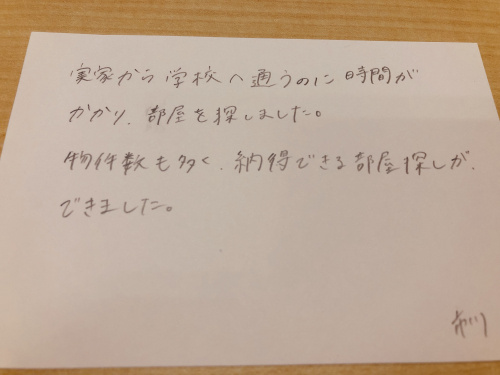 実家から学校へ通うのに時間が
かかり、部屋を探しました。
物件数も多く、納得できる部屋探しが、
できました。
市川